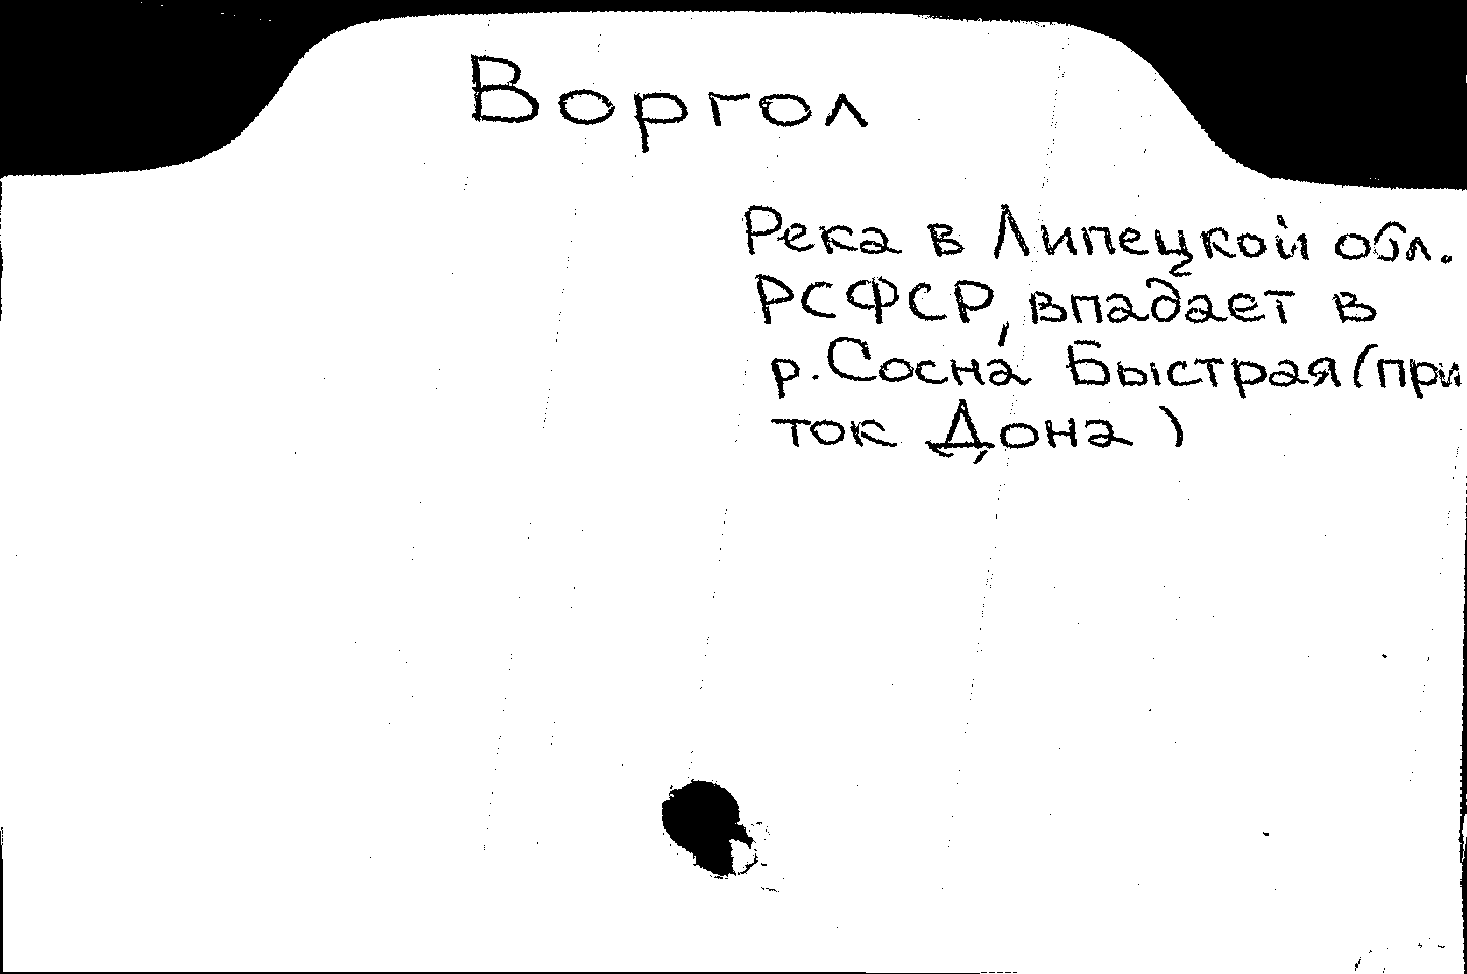 Воргол
Река в Липецкой обл.
РСФСР, впадает в
р. Сосна Быстрая (при
ток Дона)